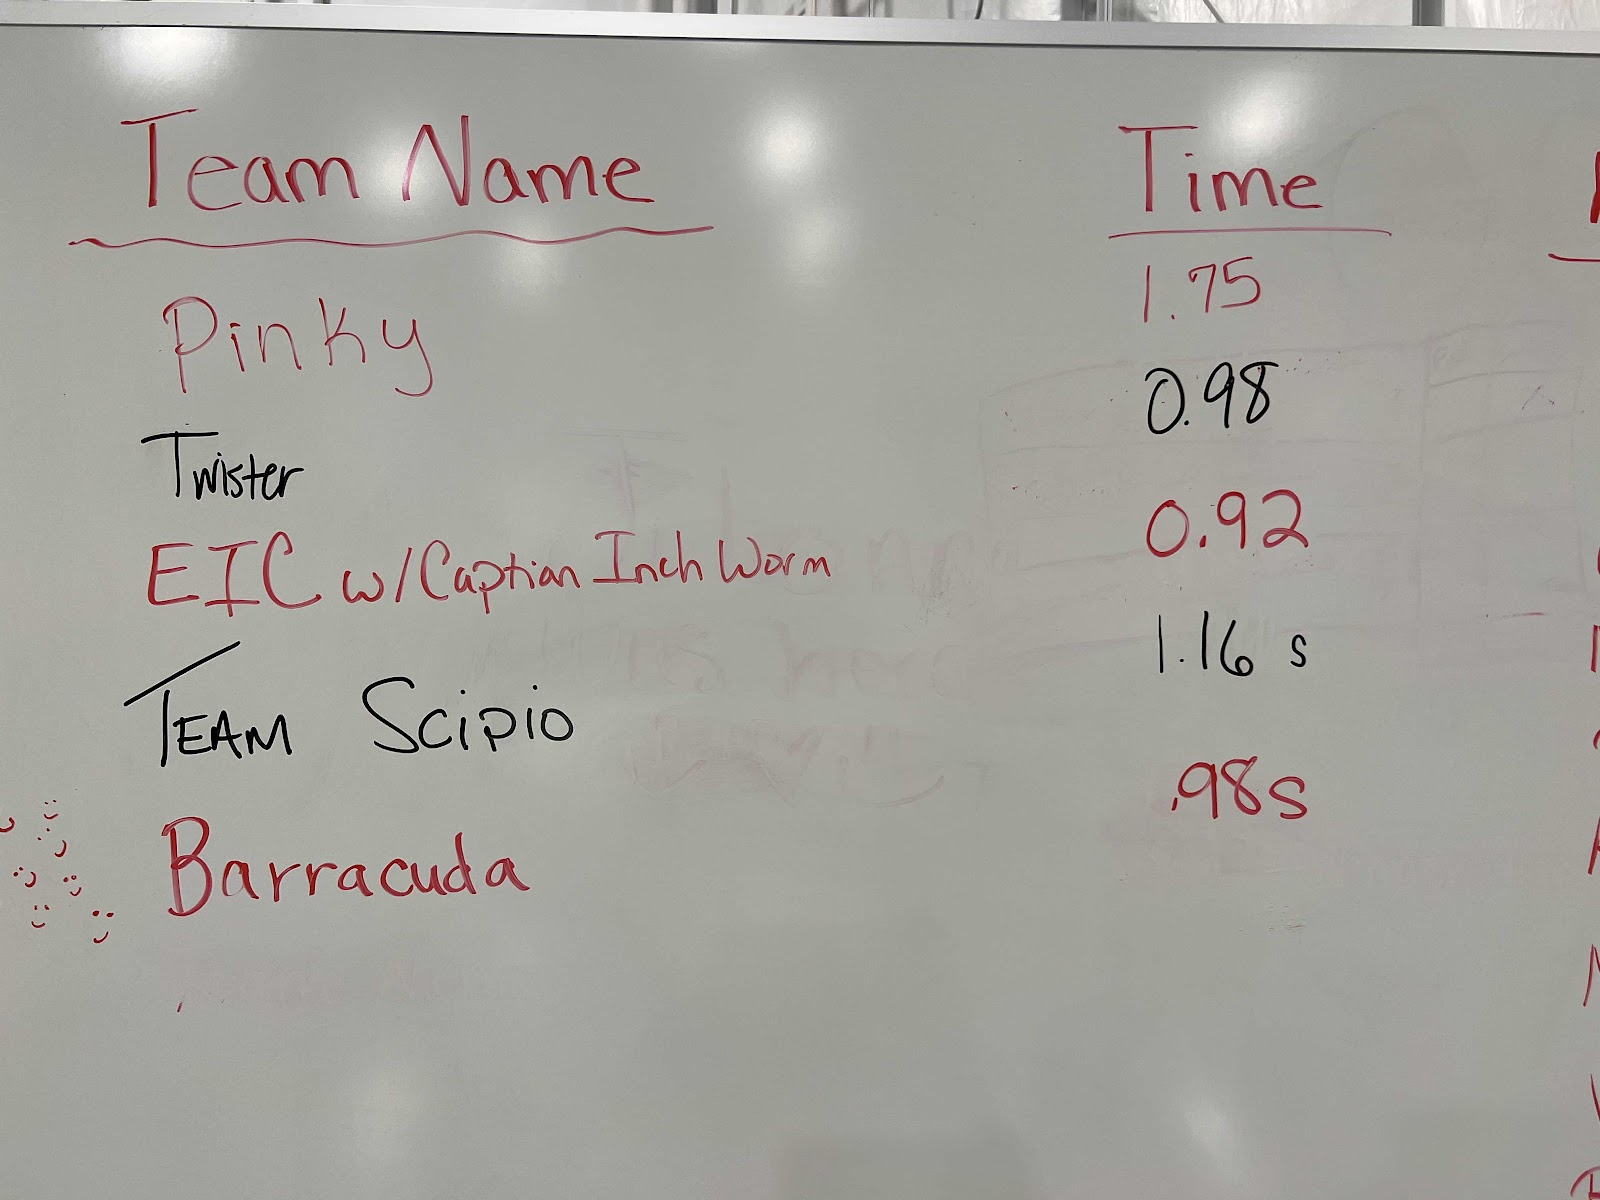 Team Name Time
Pinky 1.75
Twister 0.98
EIC w/Captian Inch Worm 0.92
TEAM SCIPIO 1.16 s
Barracuda .98s